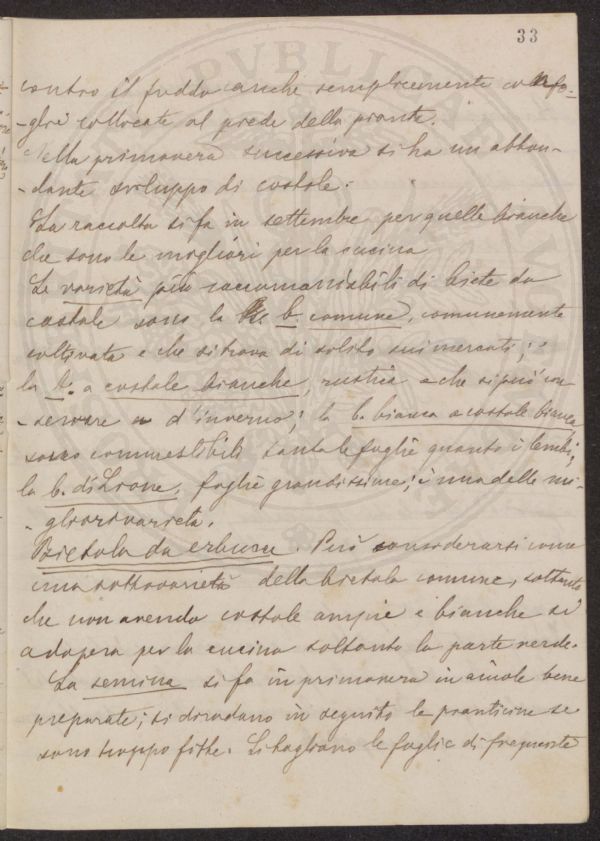 33
contro il freddo anche semplicemente con fo-
-glie collocate al piede delle piante.
Nella primavera successiva si ha un abbon-
-dante sviluppo di costole.
La raccolta si fa in settembre per quelle bianche
che sono le migliori per la cucina
Le varietà più raccomandabili di biete da
costole sono la b. comune, comunemente
coltivata e che si trova di solito sui mercati;
la b. a costole bianche, rustica e che si può con
-servare d'inverno; la b. bianca a costole bianca
sono commestibili tanto le foglie quanto i lembi;
la b. di Lione, foglie grandissime; è una delle mi-
-gliori varietà.
Bietola da erbucce. Può considerarsi come
una sottovarietà della bietola comune, soltanto
che non avendo costole ampie e bianche si
adopera per la cucina soltanto la parte verde.
La semina si fa in primavera in aiuole bene
preparate; si diradano in seguito le pianticine se
sono troppo fitte. Si tagliano le foglie di frequente